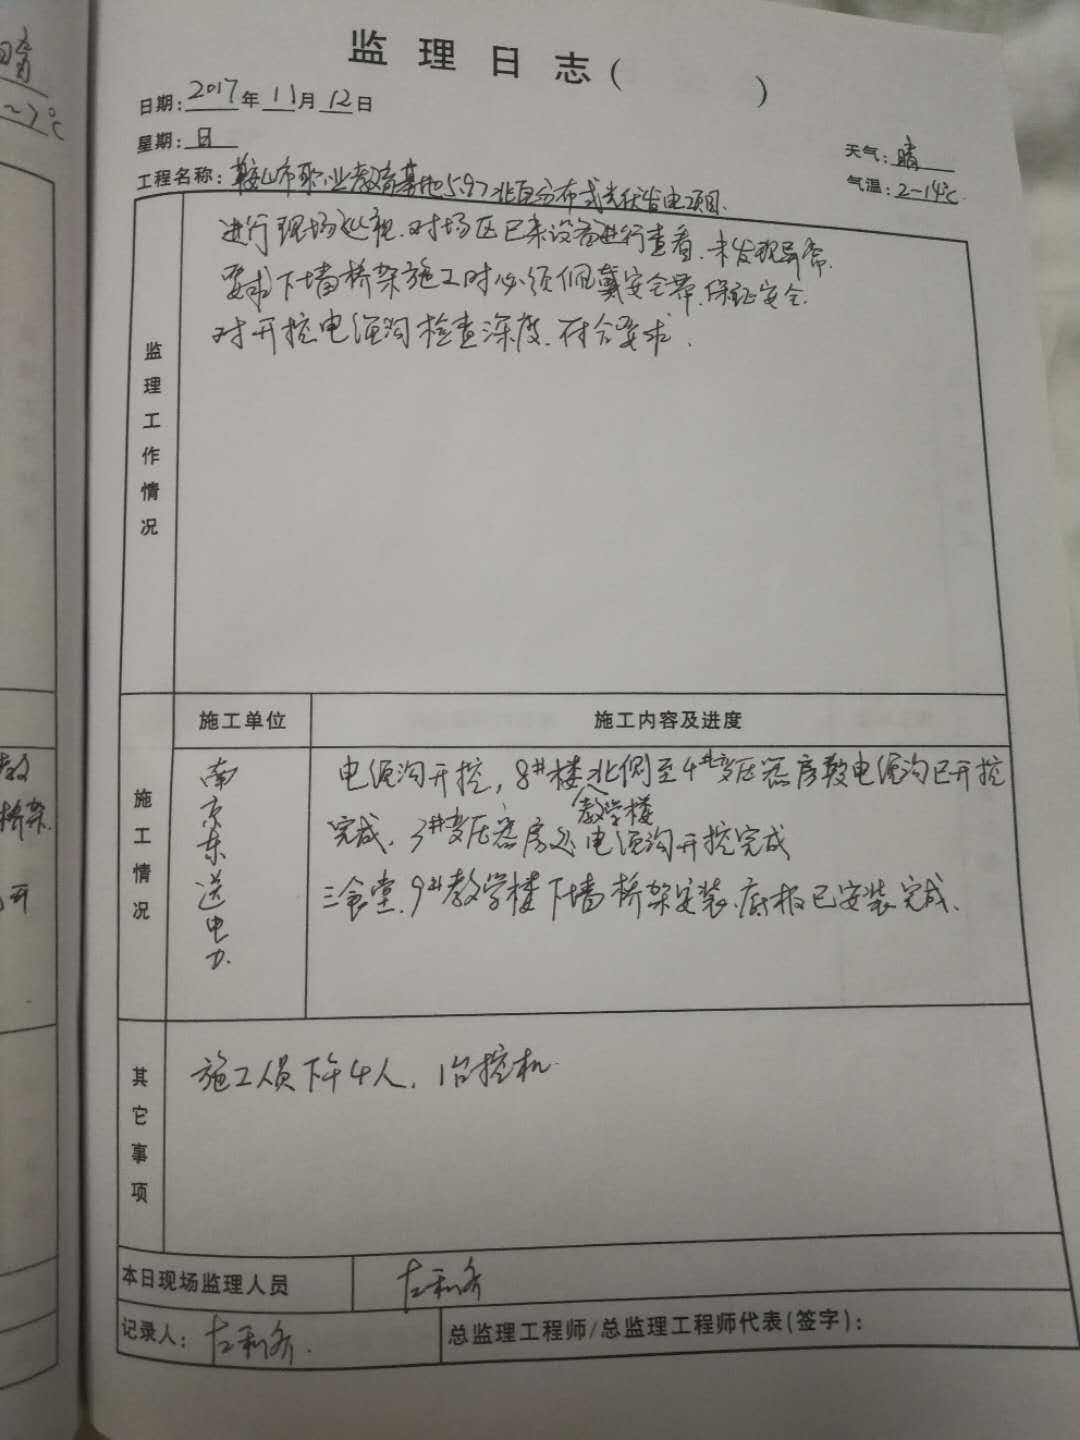 监理日志(  )
日期:2017年11月12日
星期:日
天气:晴
气温:2-14℃
工程名称:鞍山市职业教育基地5.97兆瓦分布式光伏发电项目.
监理工作情况
进行现场巡视.对场区已来设备进行查看.未发现异常.
要求下墙桥架施工时必须佩戴安全带.保证安全.
对开挖电缆沟检查深度.符合要求.
施工情况
施工单位
施工内容及进度
南京东送电力.
电缆沟开挖,8#楼北侧至4#变压器房段电缆沟已开挖
教学楼
完成.3#变压器房处电缆沟开挖完成
三食堂.9#教学楼下墙桥架安装.底板已安装完成.
其它事项
施工人员下午4人.1台挖机
本日现场监理人员
记录人:
总监理工程师/总监理工程师代表(签字):
晴
~7℃
桥架.
开